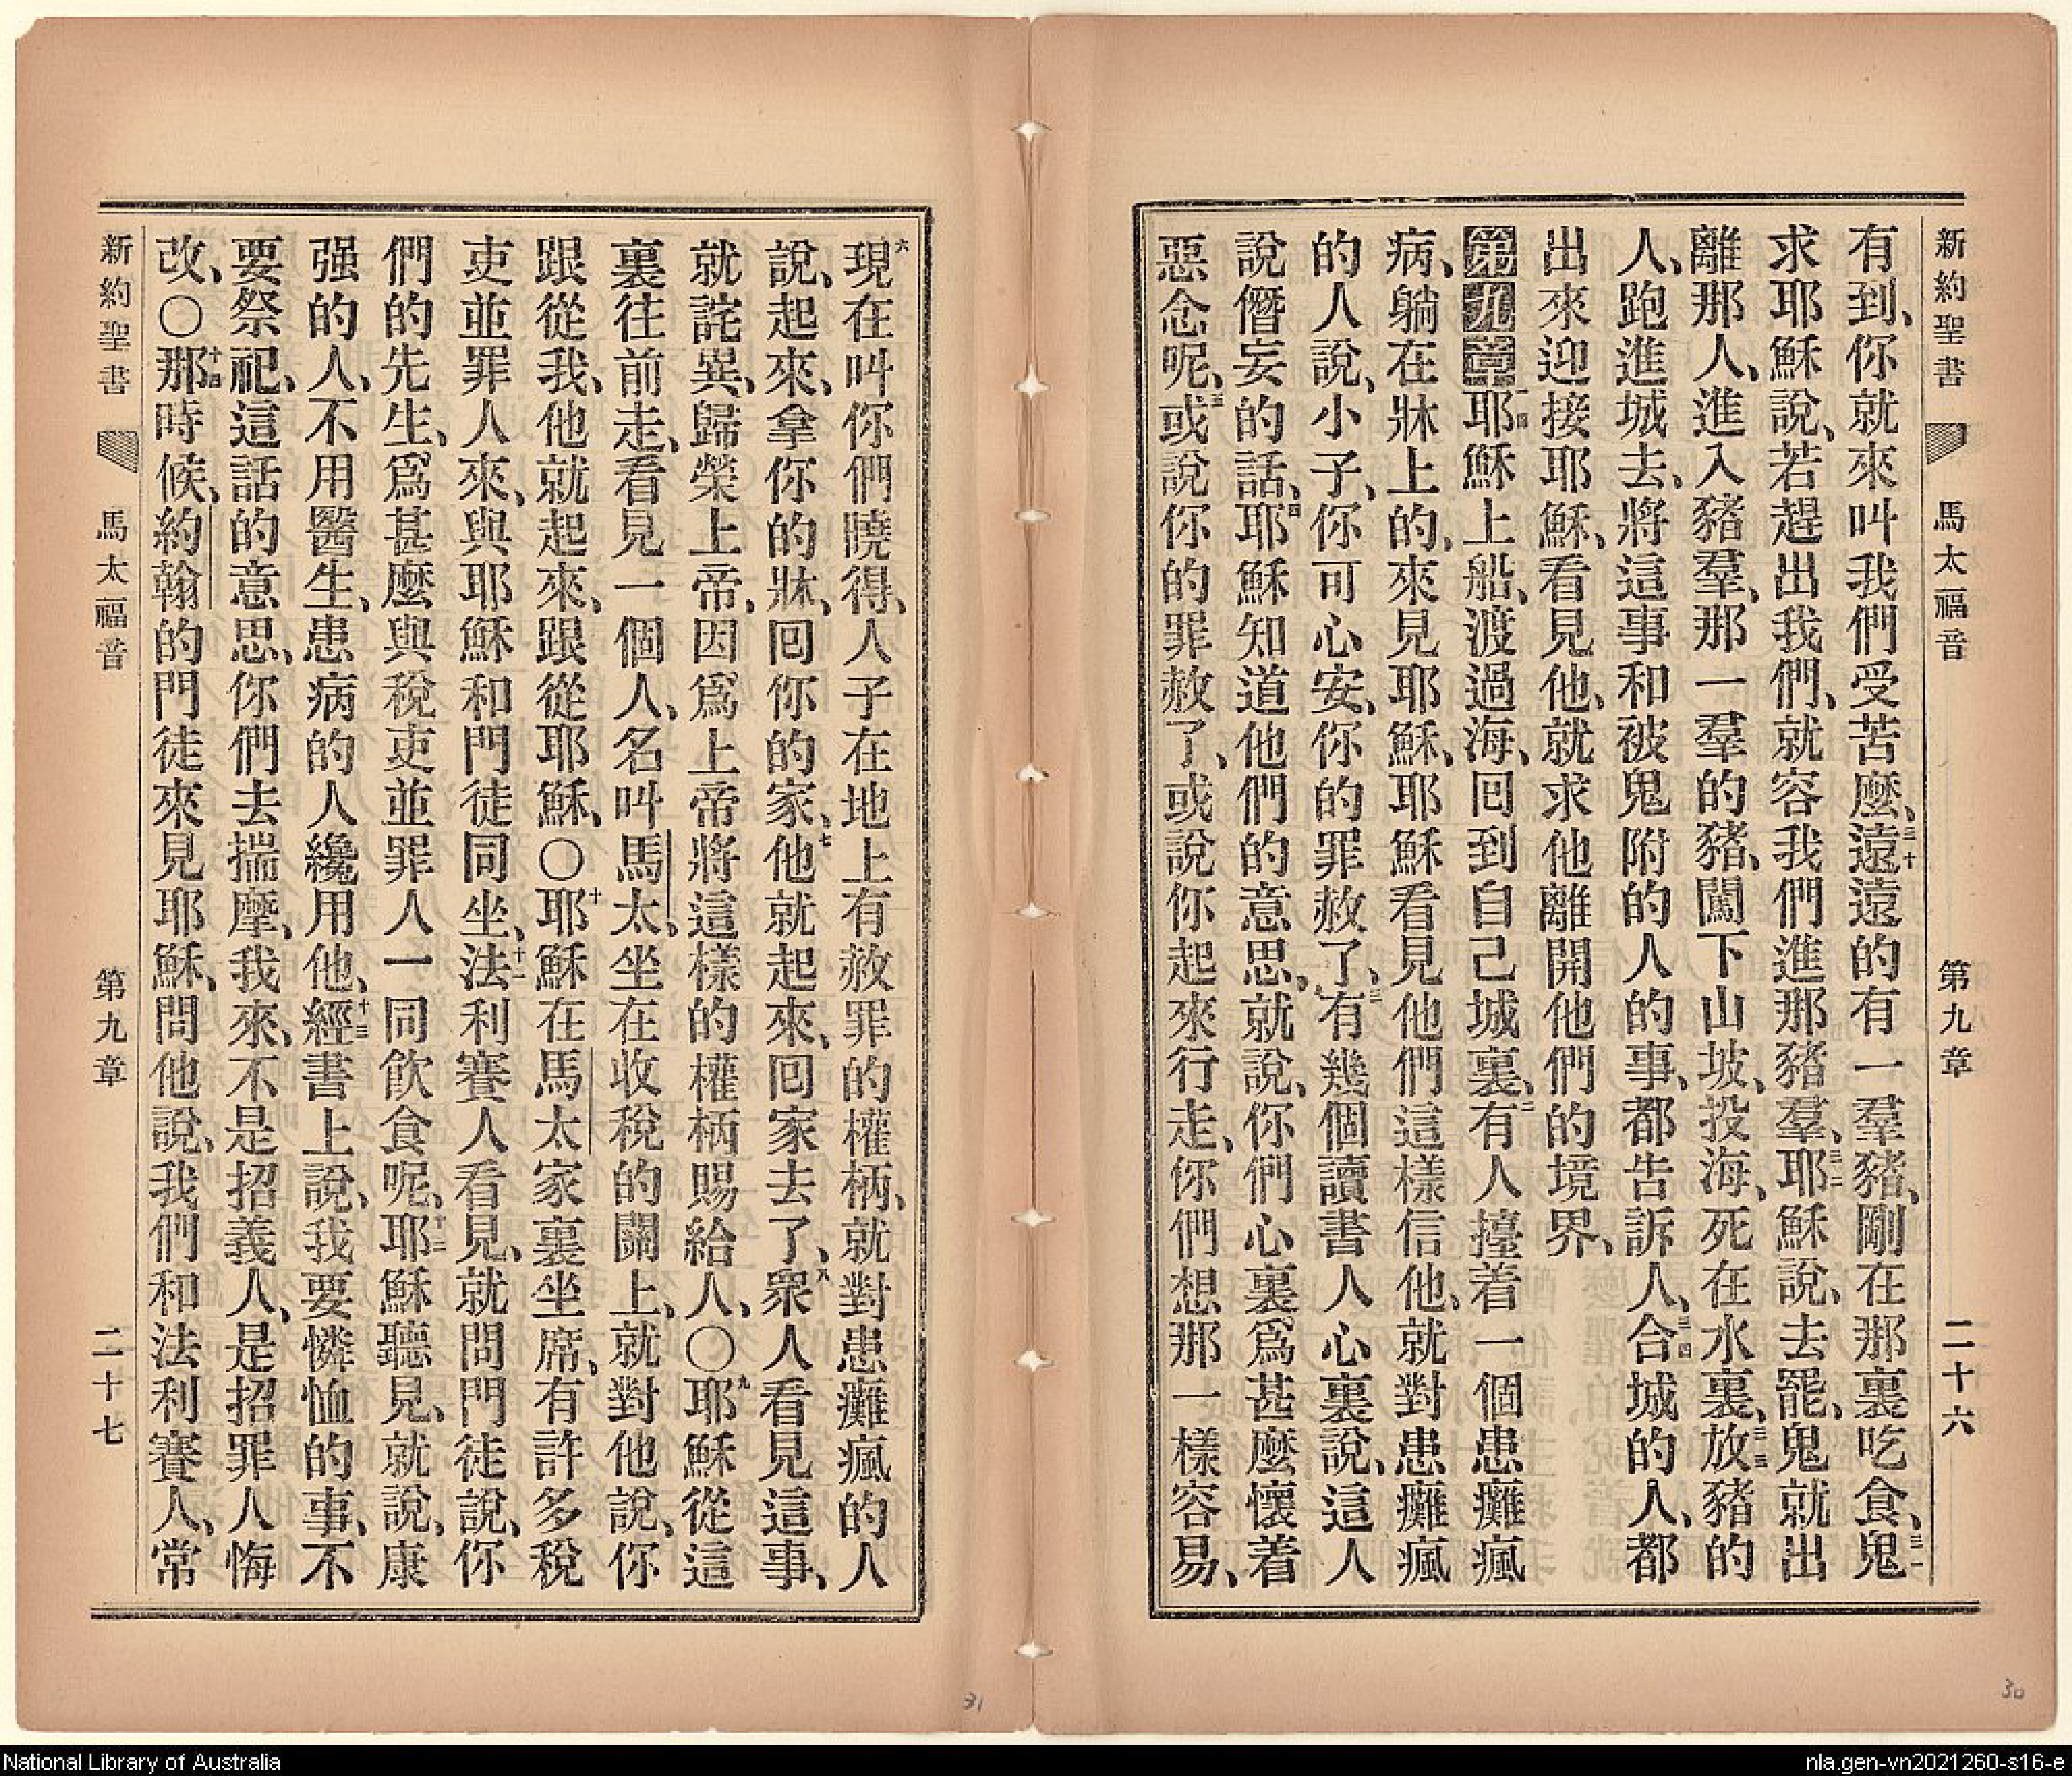 新約聖書 馬太福音 第九章 二十六
有到、你就來叫我們受苦麼、三十遠遠的有一羣豬、剛在那裏吃食、三一鬼
求耶穌說、若趕出我們、就容我們進那豬羣、三二耶穌說、去罷、鬼就出
離那人、進入豬羣、那一羣的豬、闖下山坡、投海、死在水裏、三三放豬的
人、跑進城去、將這事和被鬼附的人的事、都告訴人、三四合城的人、都
出來迎接耶穌、看見他、就求他離開他們的境界、
第九章 一耶穌上船、渡過海、回到自己城裏、二有人擡着一個患癱瘋
病、躺在牀上的、來見耶穌、耶穌看見他們這樣信他、就對患癱瘋
的人說、小子、你可心安、你的罪赦了、三有幾個讀書人心裏說、這人
說僭妄的話、四耶穌知道他們的意思、就說、你們心裏爲甚麼懷着
惡念呢、五或說你的罪赦了、或說你起來行走、你們想那一樣容易、
六現在叫你們曉得、人子在地上有赦罪的權柄、就對患癱瘋的人
說、起來、拿你的牀、回你的家、七他就起來、回家去了、八衆人看見這事、
就詫異、歸榮上帝、因爲上帝將這樣的權柄賜給人、〇九耶穌從這
裏往前走、看見一個人、名叫馬太、坐在收稅的關上、就對他說、你
跟從我、他就起來、跟從耶穌、〇十耶穌在馬太家裏坐席、有許多稅
吏並罪人來、與耶穌和門徒同坐、十一法利賽人看見、就問門徒說、你
們的先生、爲甚麼與稅吏並罪人一同飲食呢、十二耶穌聽見、就說、康
强的人、不用醫生、患病的人纔用他、十三經書上說、我要憐恤的事、不
要祭祀、這話的意思、你們去揣摩、我來、不是招義人、是招罪人悔
改、〇十四那時候、約翰的門徒來見耶穌、問他說、我們和法利賽人、常
新約聖書 馬太福音 第九章 二十七
31
30
National Library of Australia
nla.gen-vn2021260-s16-e